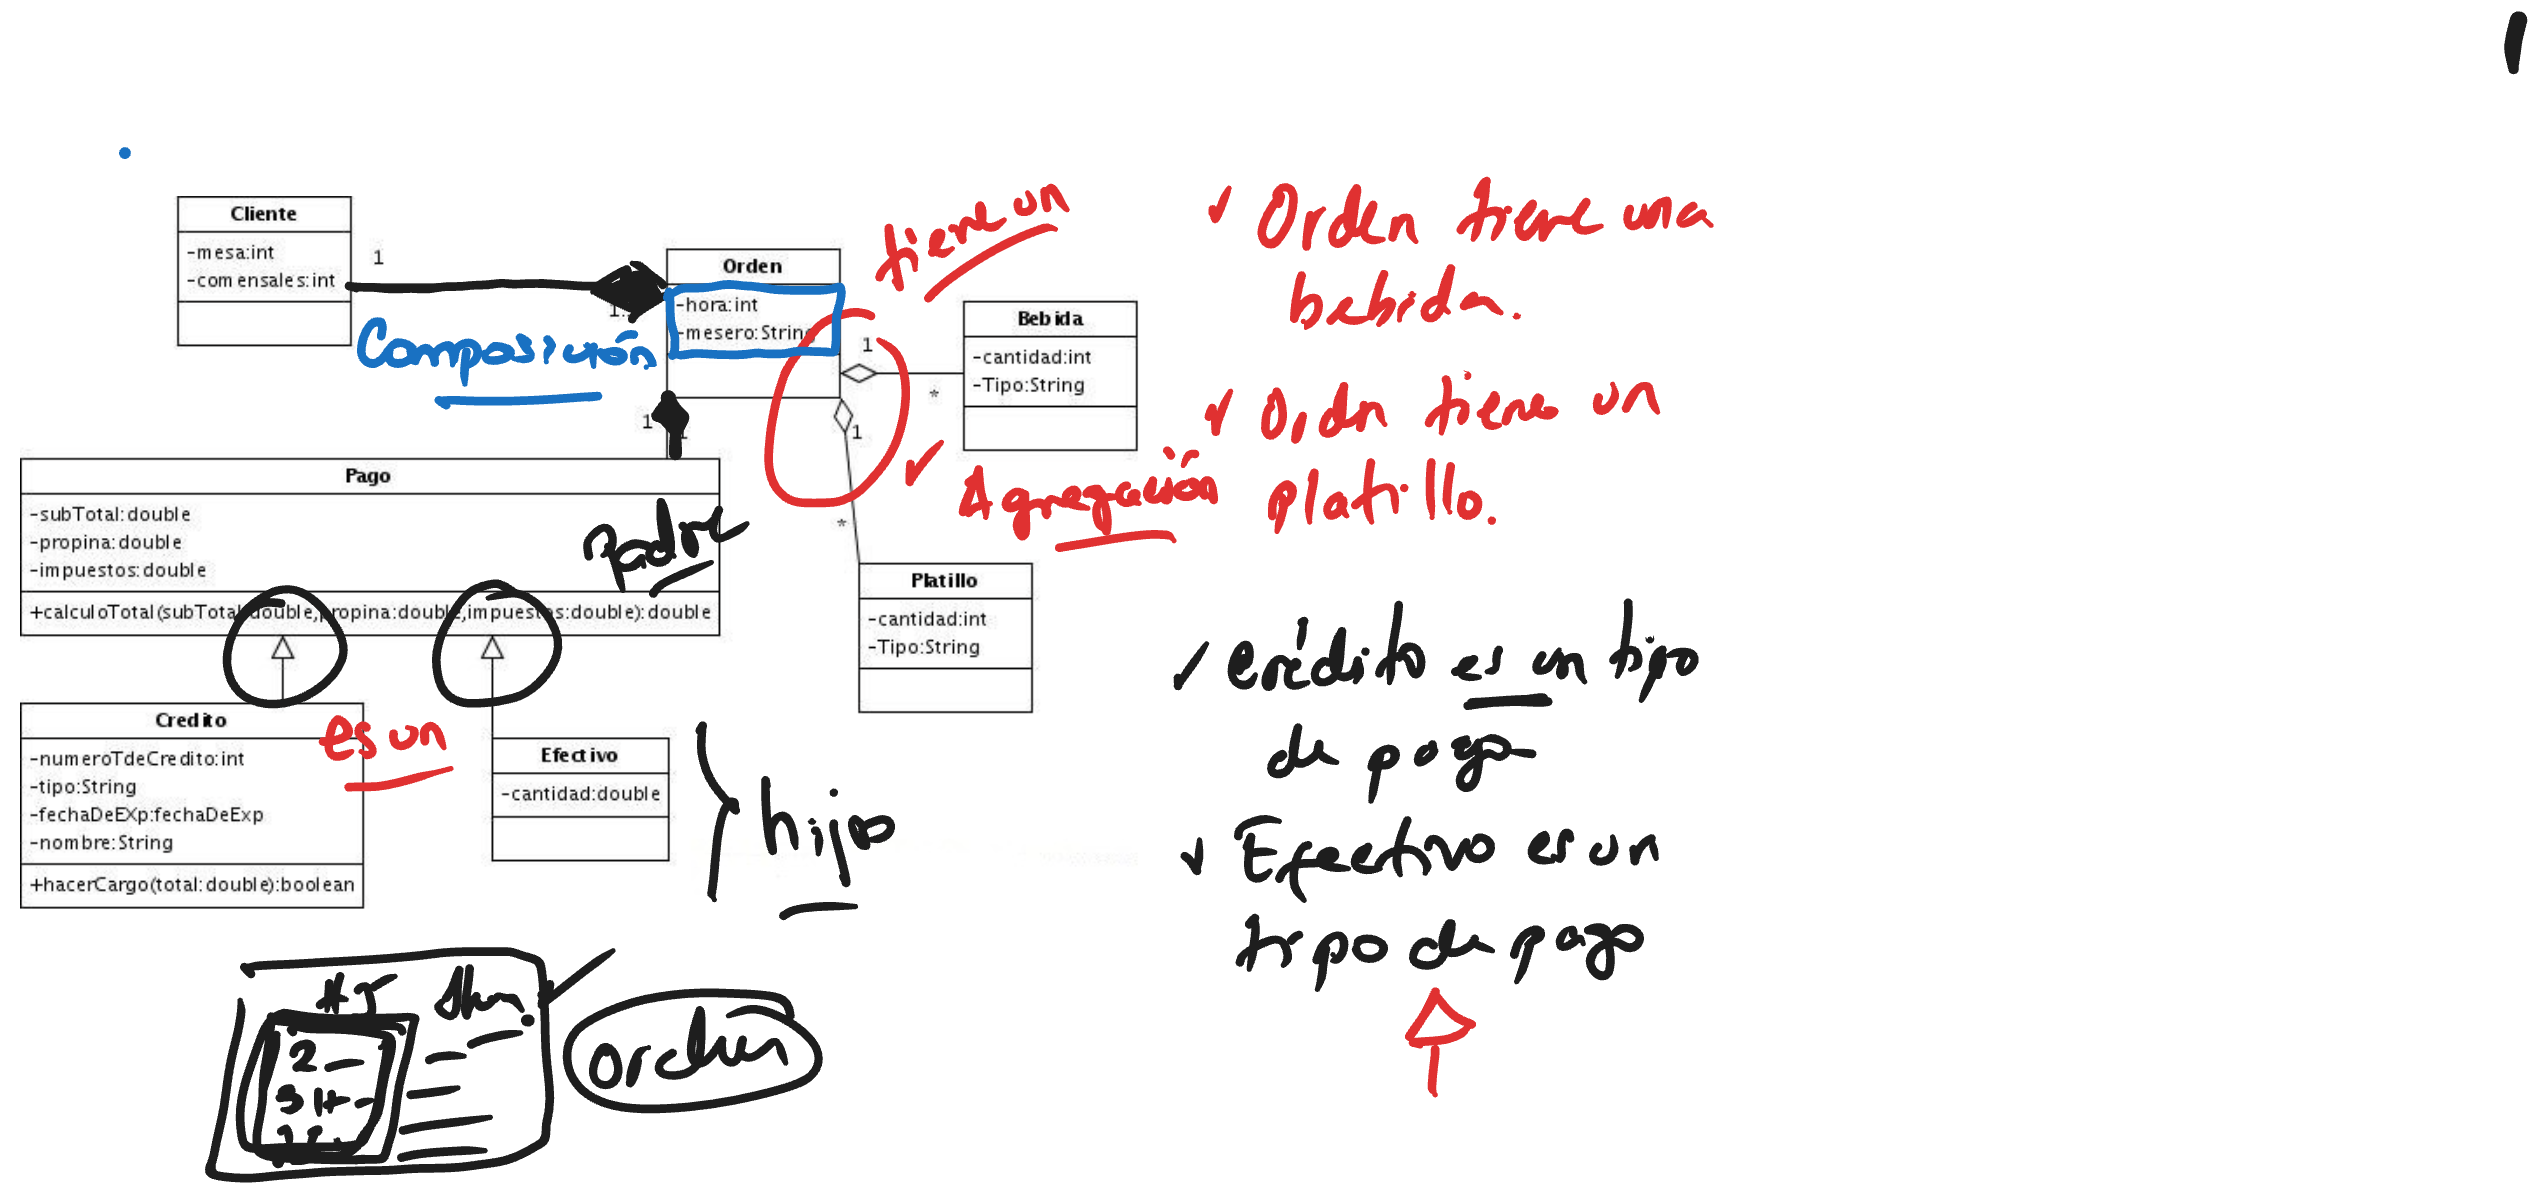 Cliente
-mesa:int
-comensales:int
1
Orden
-hora:int
-mesero:String
Composición
tiene un
1
*
Bebida
-cantidad:int
-Tipo:String
1
1
*
Agregación
Platillo
-cantidad:int
-Tipo:String
Pago
-subTotal:double
-propina:double
-impuestos:double
+calculoTotal(subTotal:double,propina:double,impuestos:double):double
Padre
Credito
-numeroTdeCredito:int
-tipo:String
-fechaDeEXp:fechaDeExp
-nombre:String
+hacerCargo(total:double):boolean
es un
Efectivo
-cantidad:double
hijo
Orden tiene una
bebida.
Orden tiene un
platillo.
crédito es un tipo
de pago
Efectivo es un
tipo de pago
2
orden